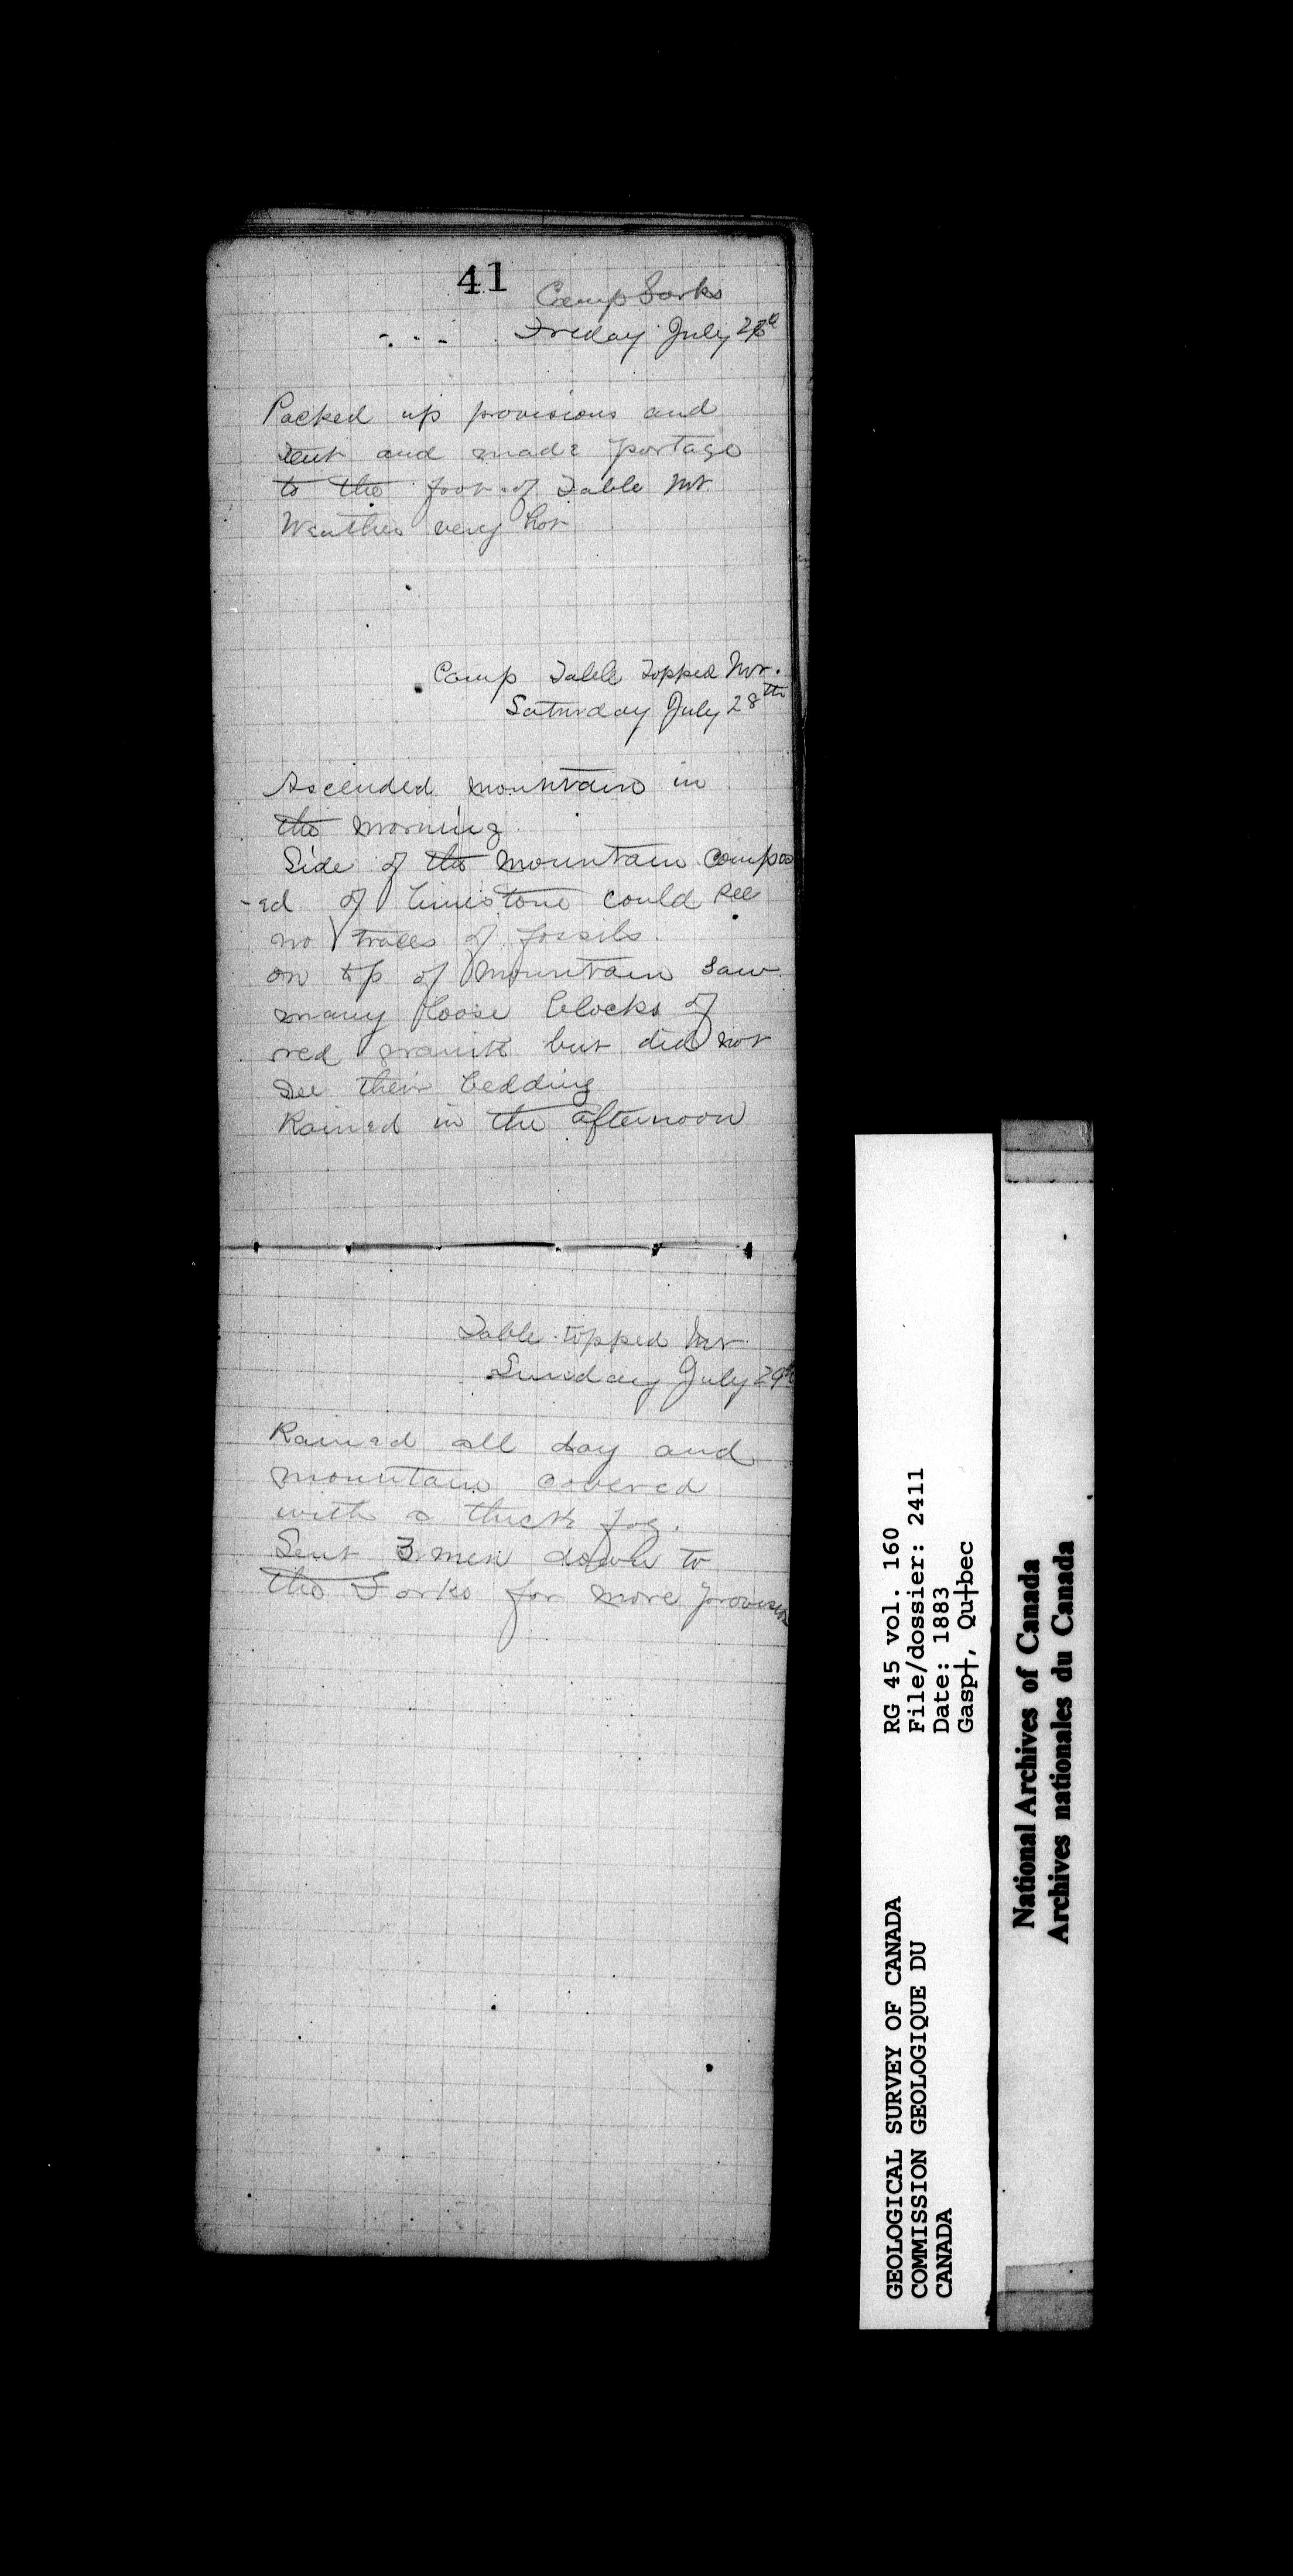 41
Camp Forks
Friday July 27th
Packed up provisions and
tent and made portage
to the foot of Table Mt.
Weather very hot
Camp Table Topped Mt.
Saturday July 28th
Ascended mountain in
the morning
Side of the mountain compos
-ed of limestone could see
no traces of fossils.
on top of mountain saw
many loose blocks of
red granite but did not
see their bedding
Rained in the afternoon
Table topped Mt
Sunday July 29th
Rained all day and
mountain covered
with a thick fog.
Sent 3 men down to
the Forks for more provisions
GEOLOGICAL SURVEY OF CANADA
COMMISSION GEOLOGIQUE DU
CANADA
RG 45 vol. 160
File/dossier: 2411
Date: 1883
Gasp†, Qu†bec
National Archives of Canada
Archives nationales du Canada